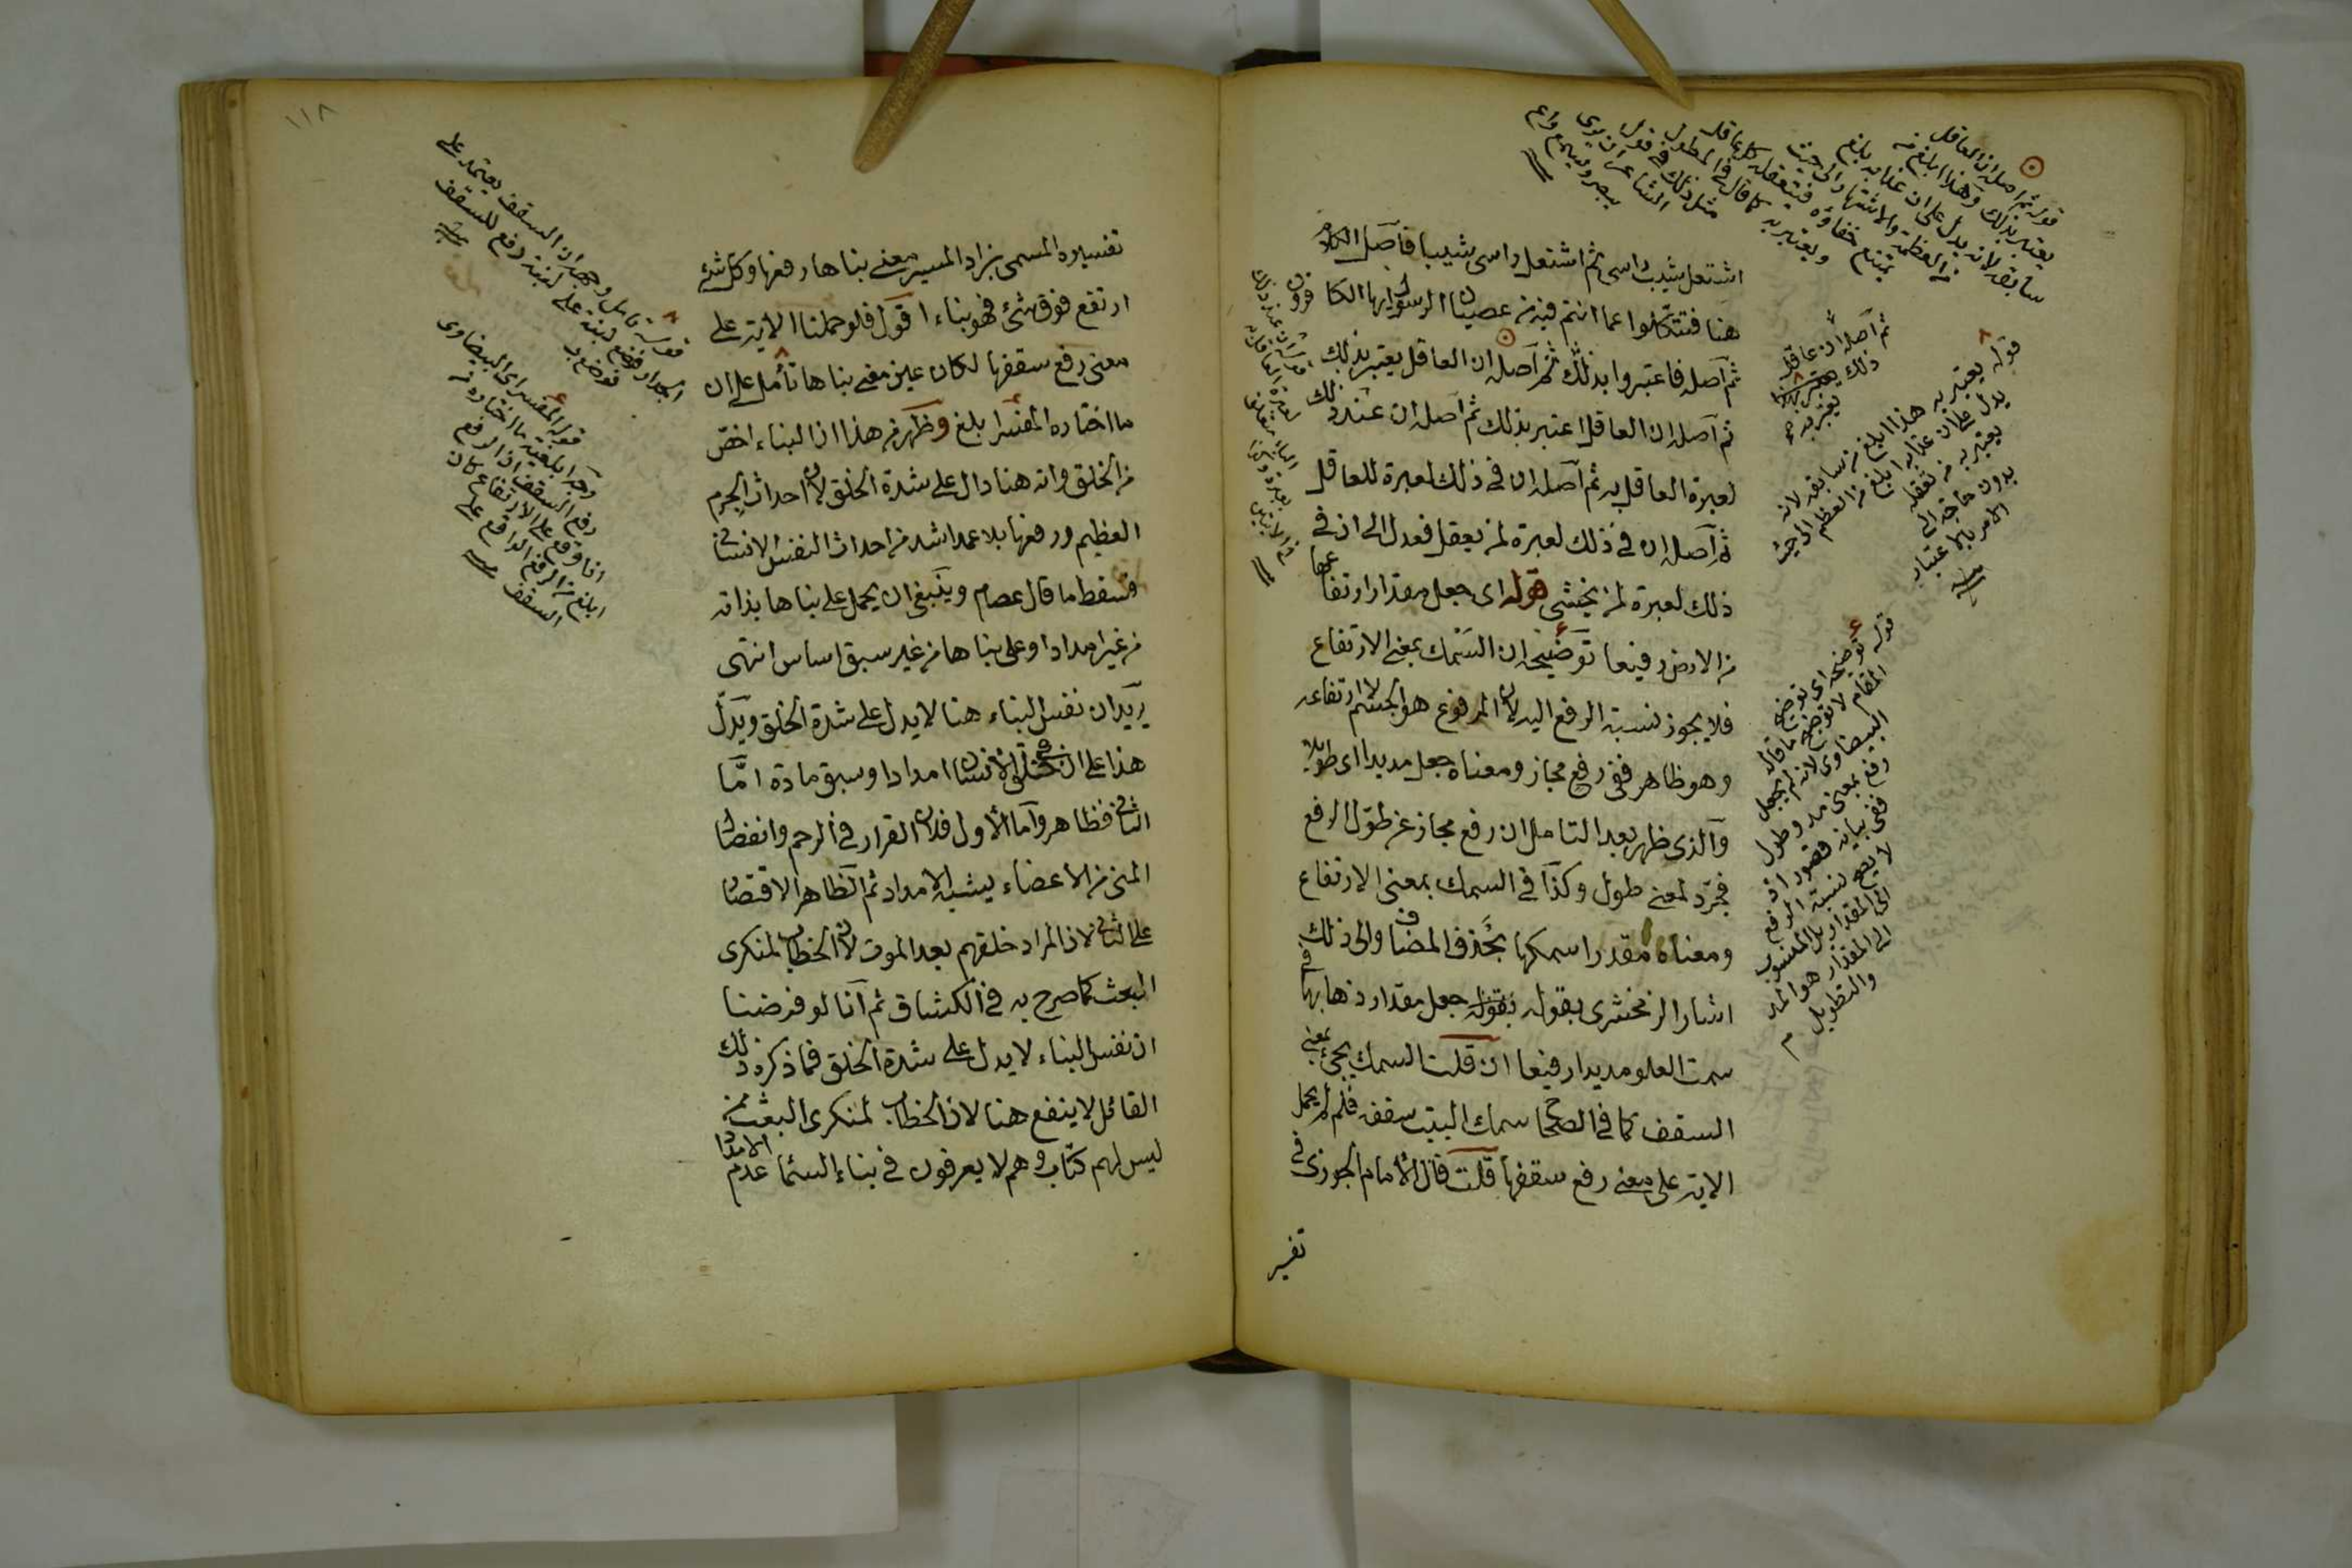 اشتعل شيب راسى ثم اشتعل راسى شيبا فآصل الكلام
هنا فتنكلوا عما انتم فيه من عصيان الرسول ايها الكافرون
ثم آصله فاعتبروا بذلك ثم آصله ان العاقل يعتبر بذلك
ثم آصله ان العاقل اعتبر بذلك ثم آصله ان عند ذلك
لعبرة العاقل به ثم آصله ان فى ذلك لعبرة للعاقل
ثم آصله ان فى ذلك لعبرة لمن يعقل فعدل الى ان فى
ذلك لعبرة لمن يخشى قوله اى جعل مقدار ارتفاعها
من الارض رفيعا توضيحه ان السمك بمعنى الارتفاع
فلا يجوز نسبة الرفع اليه لان المرفوع هو الجسم لا ارتفاعه
وهو ظاهر ففى رفع مجاز ومعناه جعل مديدا اى طويلا
والذى ظهر بعد التامل ان رفع مجاز عن طول الرفع
فجرد لمعنى طول وكذا فى السمك بمعنى الارتفاع
ومعناه مقدر اسمكها بحذف المضاف والى ذلك
اشار الزمخشرى بقوله بقوله جعل مقدار ذهابها فى
سمت العلو مديدا رفيعا ان قلت السمك يجئ بمعنى
السقف كما فى الصحاح سمك البيت سقفه فلم لم يحمل
الاية على معنى رفع سقفها قلت قال الامام الجوزى فى
تفسير
قوله ثم اصله ان العاقل
يعتبر بذلك وهذا ابلغ من
سابقه لانه يدل على ان عذابه بلغ
من العظمة والاشتهار الى حيث
يمتنع خفاؤه فيتعقله كل عاقل
ويعتبر به كما قال فى المطول
مثل ذلك فى قول
الشاعر ان يرى
مبصر ويسمع واع
ثم آصله ان عاقل
ذلك
يعتبر به صح
قوله يعتبر به هذا ابلغ من سابقه لانه
يدل على ان عذابه ابلغ من العظم الى حيث
يعتبر به من تعقله
بدون حاجة الى
الامر بالاعتبار
قوله توضيحه اى توضيح
المقام لا توضيح ما قاله
البيضاوى لانه لم يجعل
رفع بمعنى مد وطول
ففى بيانه قصور اذ
لا يصح نسبة الرفع
الى المقدار بل المنسوب
الى المقدار هو المد
والتطويل م
١١٨
تفسيره المسمى بزاد المسير معنى بناها رفعها وكل شئ
ارتفع فوق شئ فهو بناء اقول فلو حملنا الاية على
معنى رفع سقفها لكان عين معنى بناها تأمل على ان
ما اختاره المفسر ابلغ وظهر من هذا ان البناء اخص
من الخلق وانه هنا دال على شدة الخلق لان احداث الجرم
العظيم ورفعها بلا عمد اشد من احداث النفس الانسانى
فسقط ما قال عصام وينبغى ان يحمل على بناها بذاته
من غير امداد او على بناها من غير سبق اساس انتهى
يريد ان نفس البناء هنا لا يدل على شدة الخلق ويدل
هذا على ان فى خلق الانسان امدادا وسبق مادة امّا
الثانى فظاهر وآما الأول فلان القرار فى الرحم وانفصال
المنى من الاعضاء يشبه الامداد ثم الظاهر الاقتصار
على الثانى لان المراد خلقهم بعد الموت لان الخطاب لمنكرى
البعث كما صرح به فى الكشاف ثم آنا لو فرضنا
ان نفس البناء لا يدل على شدة الخلق فما ذكره ذلك
القائل لا ينفع هنا لان الخطاب لمنكرى البعث ممن
ليس لهم كتاب وهم لا يعرفون فى بناء السماء عدم الامداد
قوله تأمل وجهه ان السقف يعتمد على
الجدار فوضع لبنة على لبنة رفع للسقف
قوله المفسر اى البيضاوى
وجه ابلغية ما اختاره من
رفع السقف ان الرفع
اذا وقع على الارتفاع كان
ابلغ من الرفع الواقع على
السقف